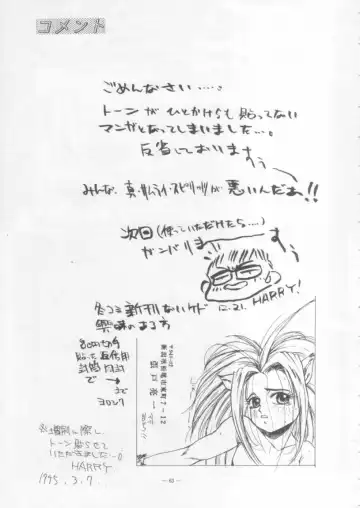 コメント
ごめんなさい…。
トーンがひとかけらも貼ってない
マンガとなってしまいました…。
反省しております
みんな、真・サムライスピリッツが悪いんだぁ!!
次回(使っていただけたら…)
ガンバリます
HARRY!
12.21.
冬コミ新刊ないケド
興味のある方
80円切手
貼った返信用
封筒同封
で
まで
ヨロシク
7-12
トーン貼らせて
いただきました…。
HARRY
1995.3.7.
-40-